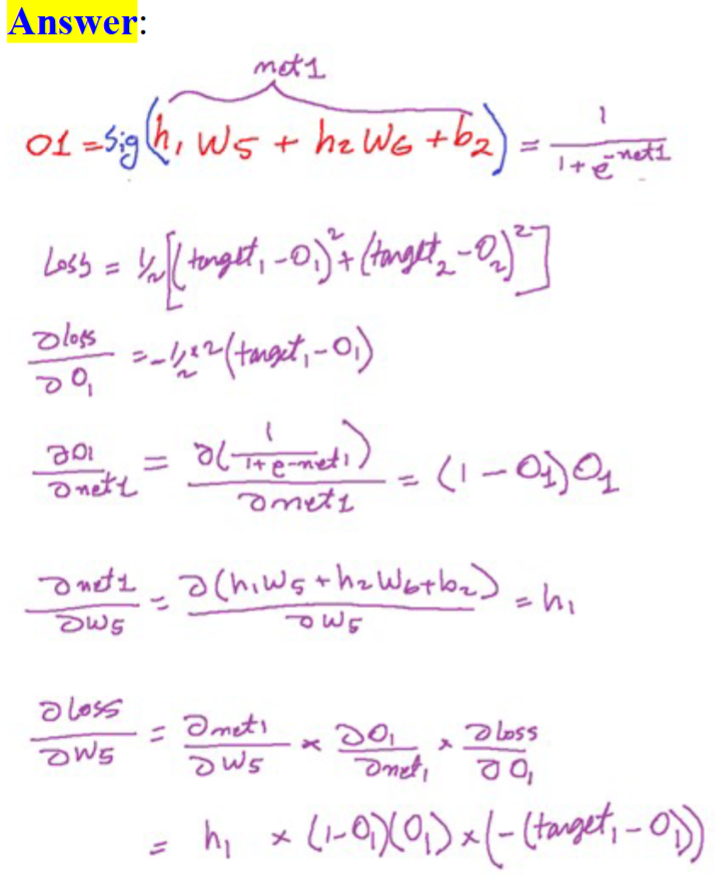 Answer:
net1
O1 = sig(h₁ W5 + h2 W6 + b2) = 1 / (1 + e^-net1)
Loss = 1/2 [(target₁ - O₁)² + (target₂ - O₂)²]
∂loss / ∂O₁ = - 1/2 × 2 (target₁ - O₁)
∂O1 / ∂net1 = ∂(1 / (1 + e-net1)) / ∂net1 = (1 - O1) O1
∂net1 / ∂W5 = ∂(h1W5 + h2W6 + b2) / ∂W5 = h1
∂Loss / ∂W5 = ∂net1 / ∂W5 × ∂O₁ / ∂net₁ × ∂Loss / ∂O₁
= h₁ × (1-O₁)(O₁) × (-(target₁ - O₁))